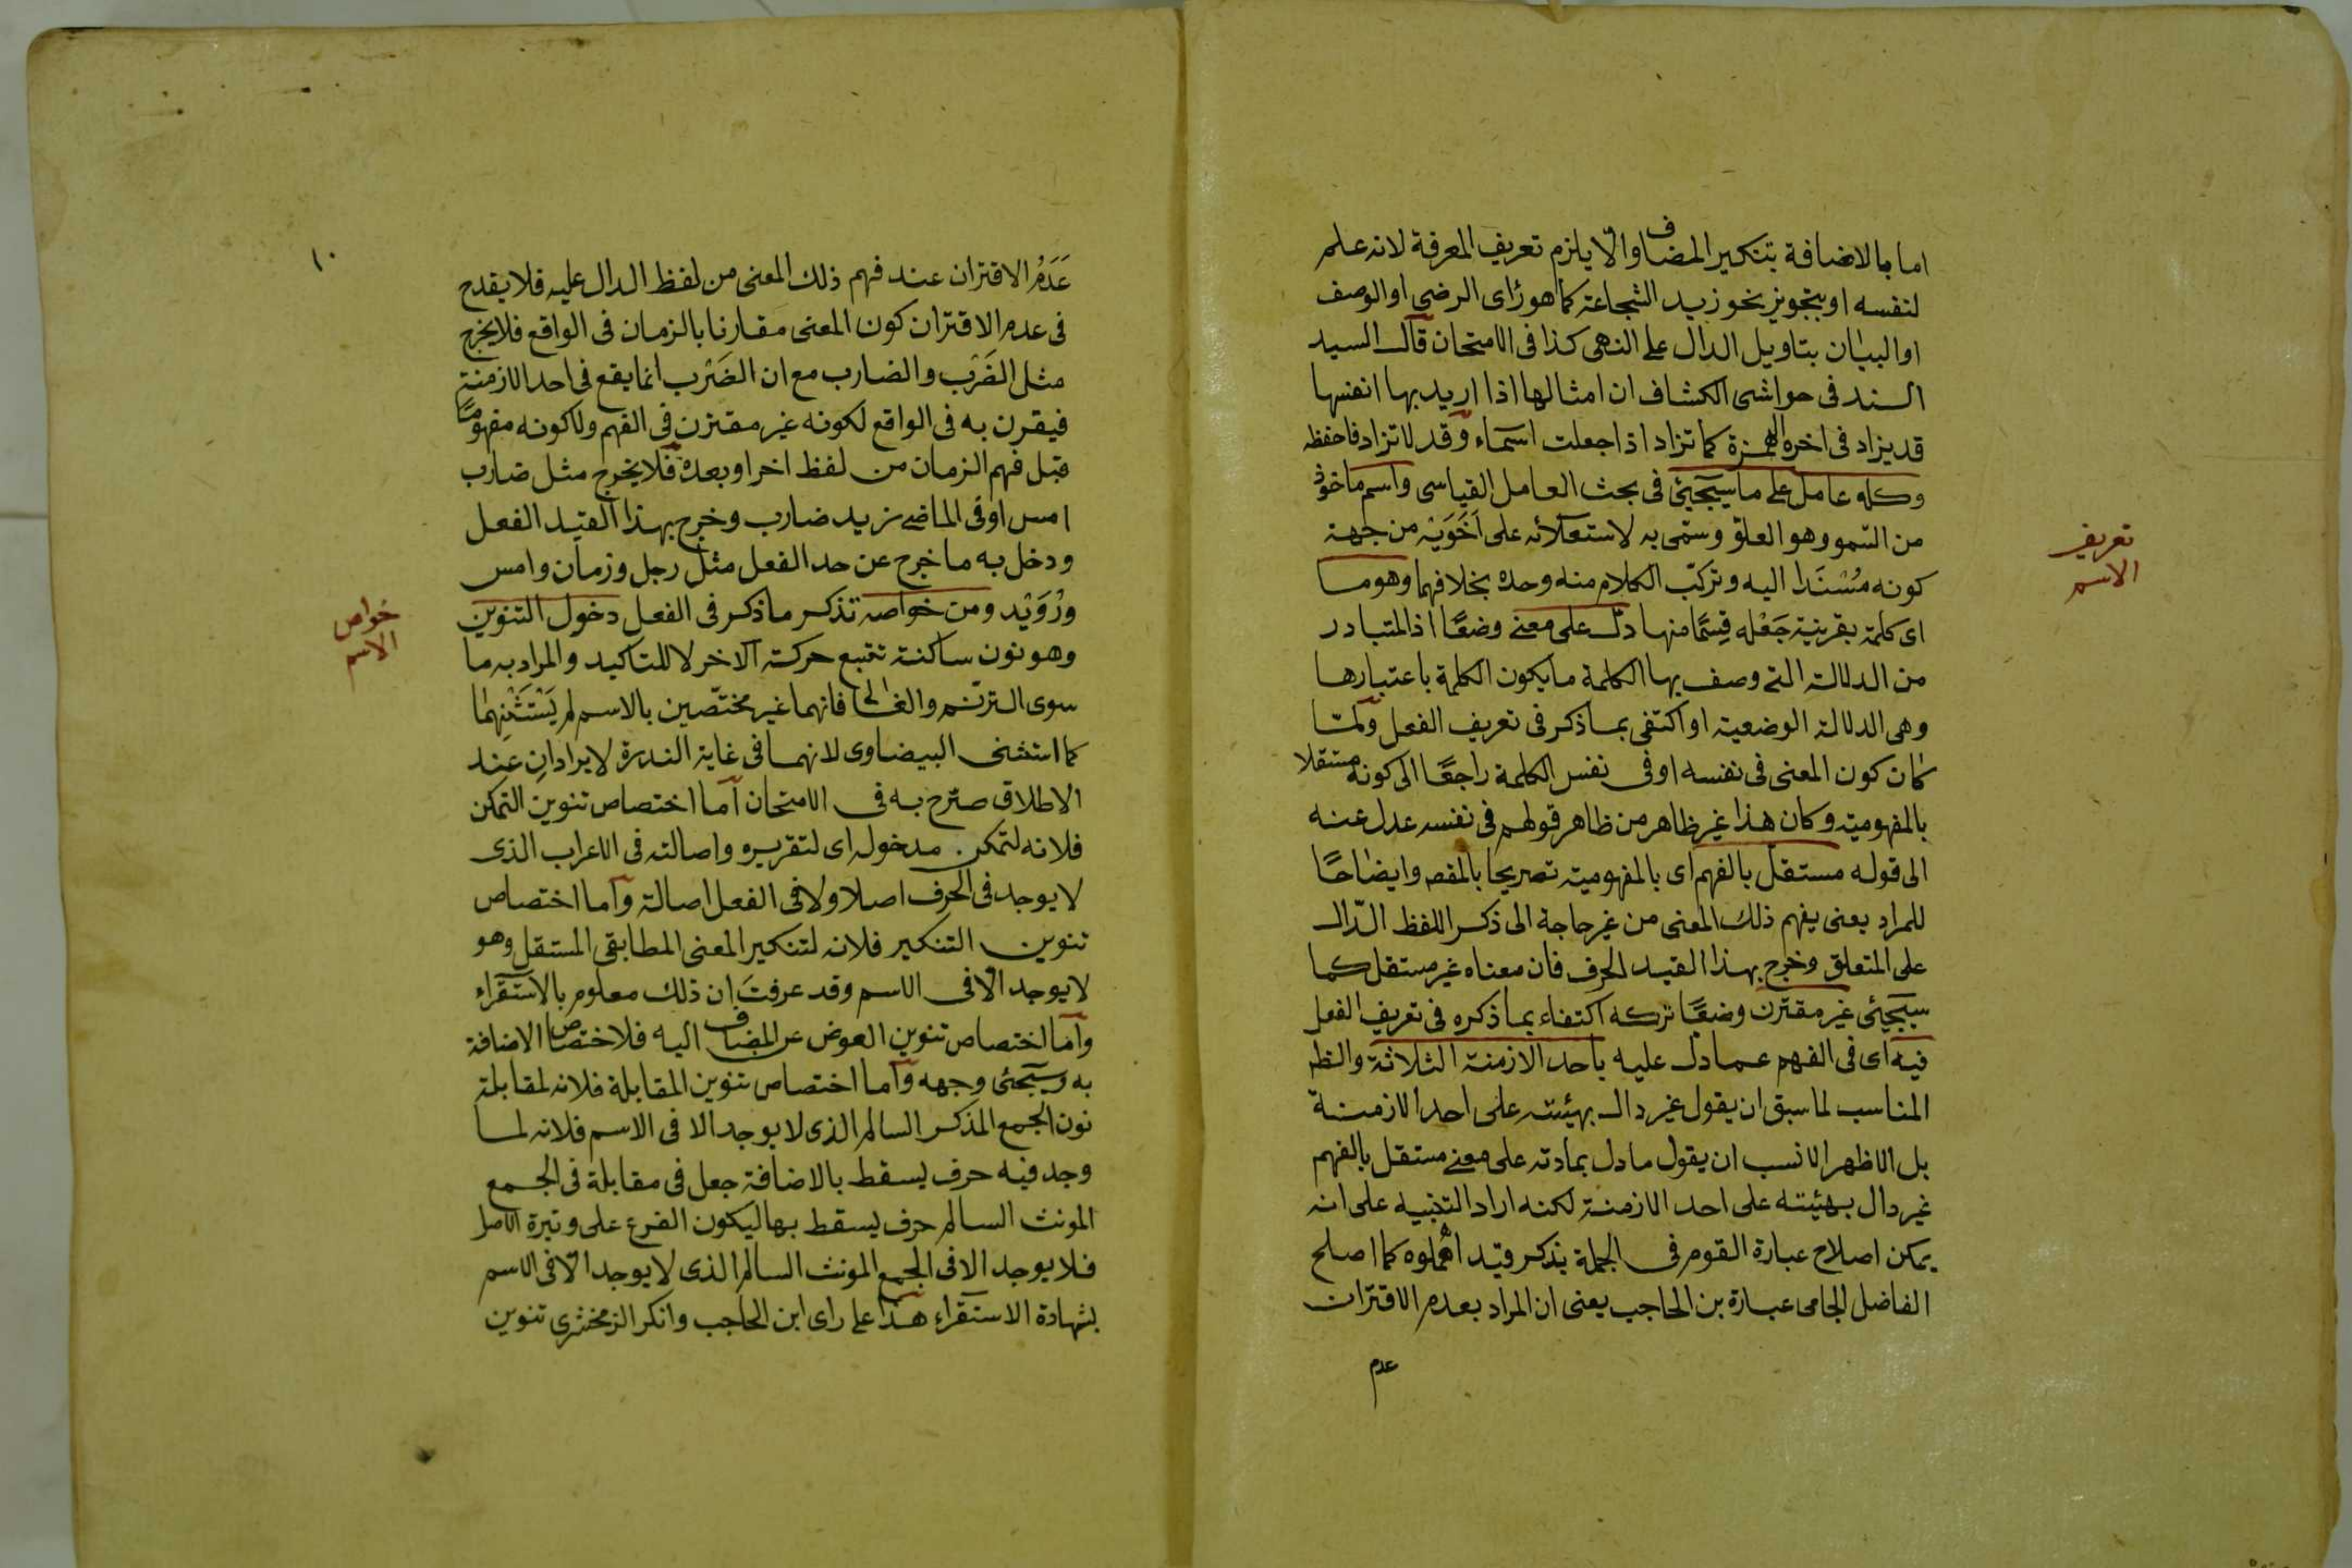 اما بالاضافة بتنكير المضاف والّا يلزم تعريف المعرفة لانه علم
لنفسه او بتجويز نحو زيد الشجاعة كما هو رأى الرضى او الوصف
او البيان بتاويل الدال على النهى كذا فى الامتحان قال السيد
السند فى حواشى الكشاف ان امثالها اذا اريد بها انفسها
قد يزاد فى اخره الهمزة كما تزاد اذا جعلت اسماء وقد لا تزاد فاحفظه
وكله عامل على ما سيجيئ فى بحث العامل القياسى واسم ماخوذ
من السمو وهو العلوّ وسمّى به لاستعلائه على اَخَوَيْه من جهة
كونه مُسْنَدا اليه وتركّب الكلام منه وحده بخلافهما وهو ما
اى كلمة بقرينة جَعْله قِسمًا منها دلّ على معنى وضعًا اذ المتبادر
من الدلالة التى وصف بها الكلمة ما يكون الكلمة باعتبارها
وهى الدلالة الوضعية او اكتفى بما ذكر فى تعريف الفعل ولمّا
كان كون المعنى فى نفسه او فى نفس الكلمة راجعًا الى كونه مستقلا
بالمفهومية وكان هذا غير ظاهر من ظاهر قولهم فى نفسه عدل عنه
الى قوله مستقل بالفهم اى بالمفهومية تصريحا بالمقصـ وايضاحًا
للمراد يعنى يفهم ذلك المعنى من غير حاجة الى ذكر اللفظ الدّال
على المتعلق وخرج بهذا القيد الحرف فان معناه غير مستقل كما
سيجيئ غير مقترن وضعًا تركه اكتفاء بما ذكره فى تعريف الفعل
فيه اى فى الفهم عما دل عليه باحد الازمنة الثلاثة والظـ
المناسب لما سبق ان يقول غير دال بهيئته على احد الازمنة
بل الاظهر الانسب ان يقول ما دل بمادته على معنى مستقل بالفهم
غير دال بهيئته على احد الازمنة لكنه اراد التنبيه على انه
يمكن اصلاح عبارة القوم فى الجملة بذكر قيد اهملوه كما اصلح
الفاضل الجامى عبارة بن الحاجب يعنى ان المراد بعدم الاقتران
عدم
تعريف
الاسم
١٠
عَدَمُ الاقتران عند فهم ذلك المعنى من لفظ الدال عليه فلا يقدح
فى عدم الاقتران كون المعنى مقارنا بالزمان فى الواقع فلا يخرج
مثل الضَرْب والضارب مع ان الضَرْب انما يقع فى احد الازمنة
فيقرن به فى الواقع لكونه غير مقترن فى الفهم ولا كونه مفهومًا
قبل فهم الزمان من لفظ اخر او بعده فلا يخرج مثل ضارب
امس او فى الماضى زيد ضارب وخرج بهذا القيد الفعل
ودخل به ما خرج عن حد الفعل مثل رجل وزمان وامس
ورُوَيْد ومن خواصه تذكر ما ذكر فى الفعل دخول التنوين
وهو نون ساكنة تتبع حركة الاخر لا للتاكيد والمراد به ما
سوى الترنّم والغالى فانهما غير مختصّين بالاسم لم يَسْتَثْنِهما
كما استثنى البيضاوى لانهما فى غاية الندرة لا يرادان عند
الاطلاق صرّح به فى الامتحان اما اختصاص تنوين التمكن
فلانه لتمكن مدخوله اى لتقريره واصالته فى الاعراب الذى
لا يوجد فى الحرف اصلا ولا فى الفعل اصالة واما اختصاص
تنوين التنكير فلانه لتنكير المعنى المطابقى المستقل وهو
لا يوجد الّا فى الاسم وقد عرفتَ ان ذلك معلوم بالاستقراء
واما اختصاص تنوين العوض عن المضاف اليه فلاختصاص الاضافة
به وسيجئى وجهه واما اختصاص تنوين المقابلة فلانه لمقابلة
نون الجمع المذكر السالم الذى لا يوجد الا فى الاسم فلانه لما
وجد فيه حرف يسقط بالاضافة جعل فى مقابلة فى الجمع
المونث السالم حرف يسقط بها ليكون الفرع على وتيرة الاصل
فلا يوجد الا فى الجمع المونث السالم الذى لا يوجد الّا فى الاسم
بشهادة الاستقراء هذا على راى ابن الحاجب وانكر الزمخشرى تنوين
خواص
الاسم